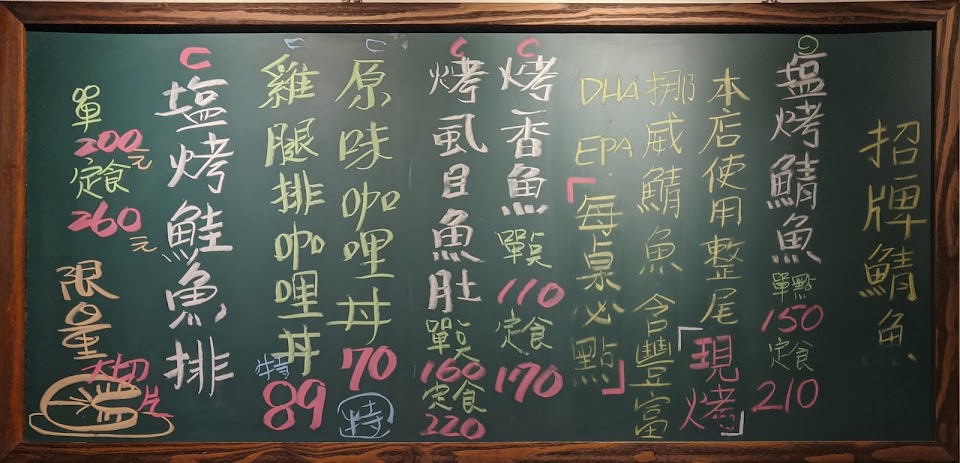 招牌鯖魚
塩烤鯖魚 單點150 定食210
本店使用整尾「現烤」
挪威鯖魚 含豐富
DHA EPA 「每桌必點」
烤香魚 單点110 定食170
烤虱目魚肚 單点160 定食220
原味咖哩丼 70 特
雞腿排咖哩丼 特 89
塩烤鮭魚排
單200元 定食260元 限量
大切片